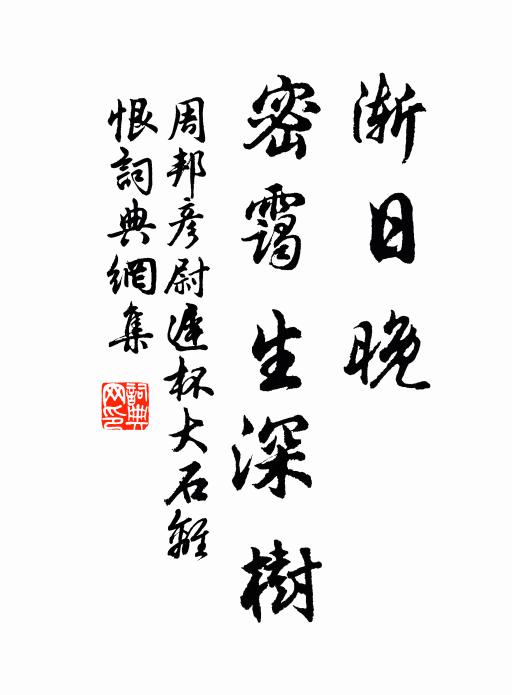 渐日晚
密靄生深樹
周邦彦尉遲杯大石離
恨詞典網集
詞典網印